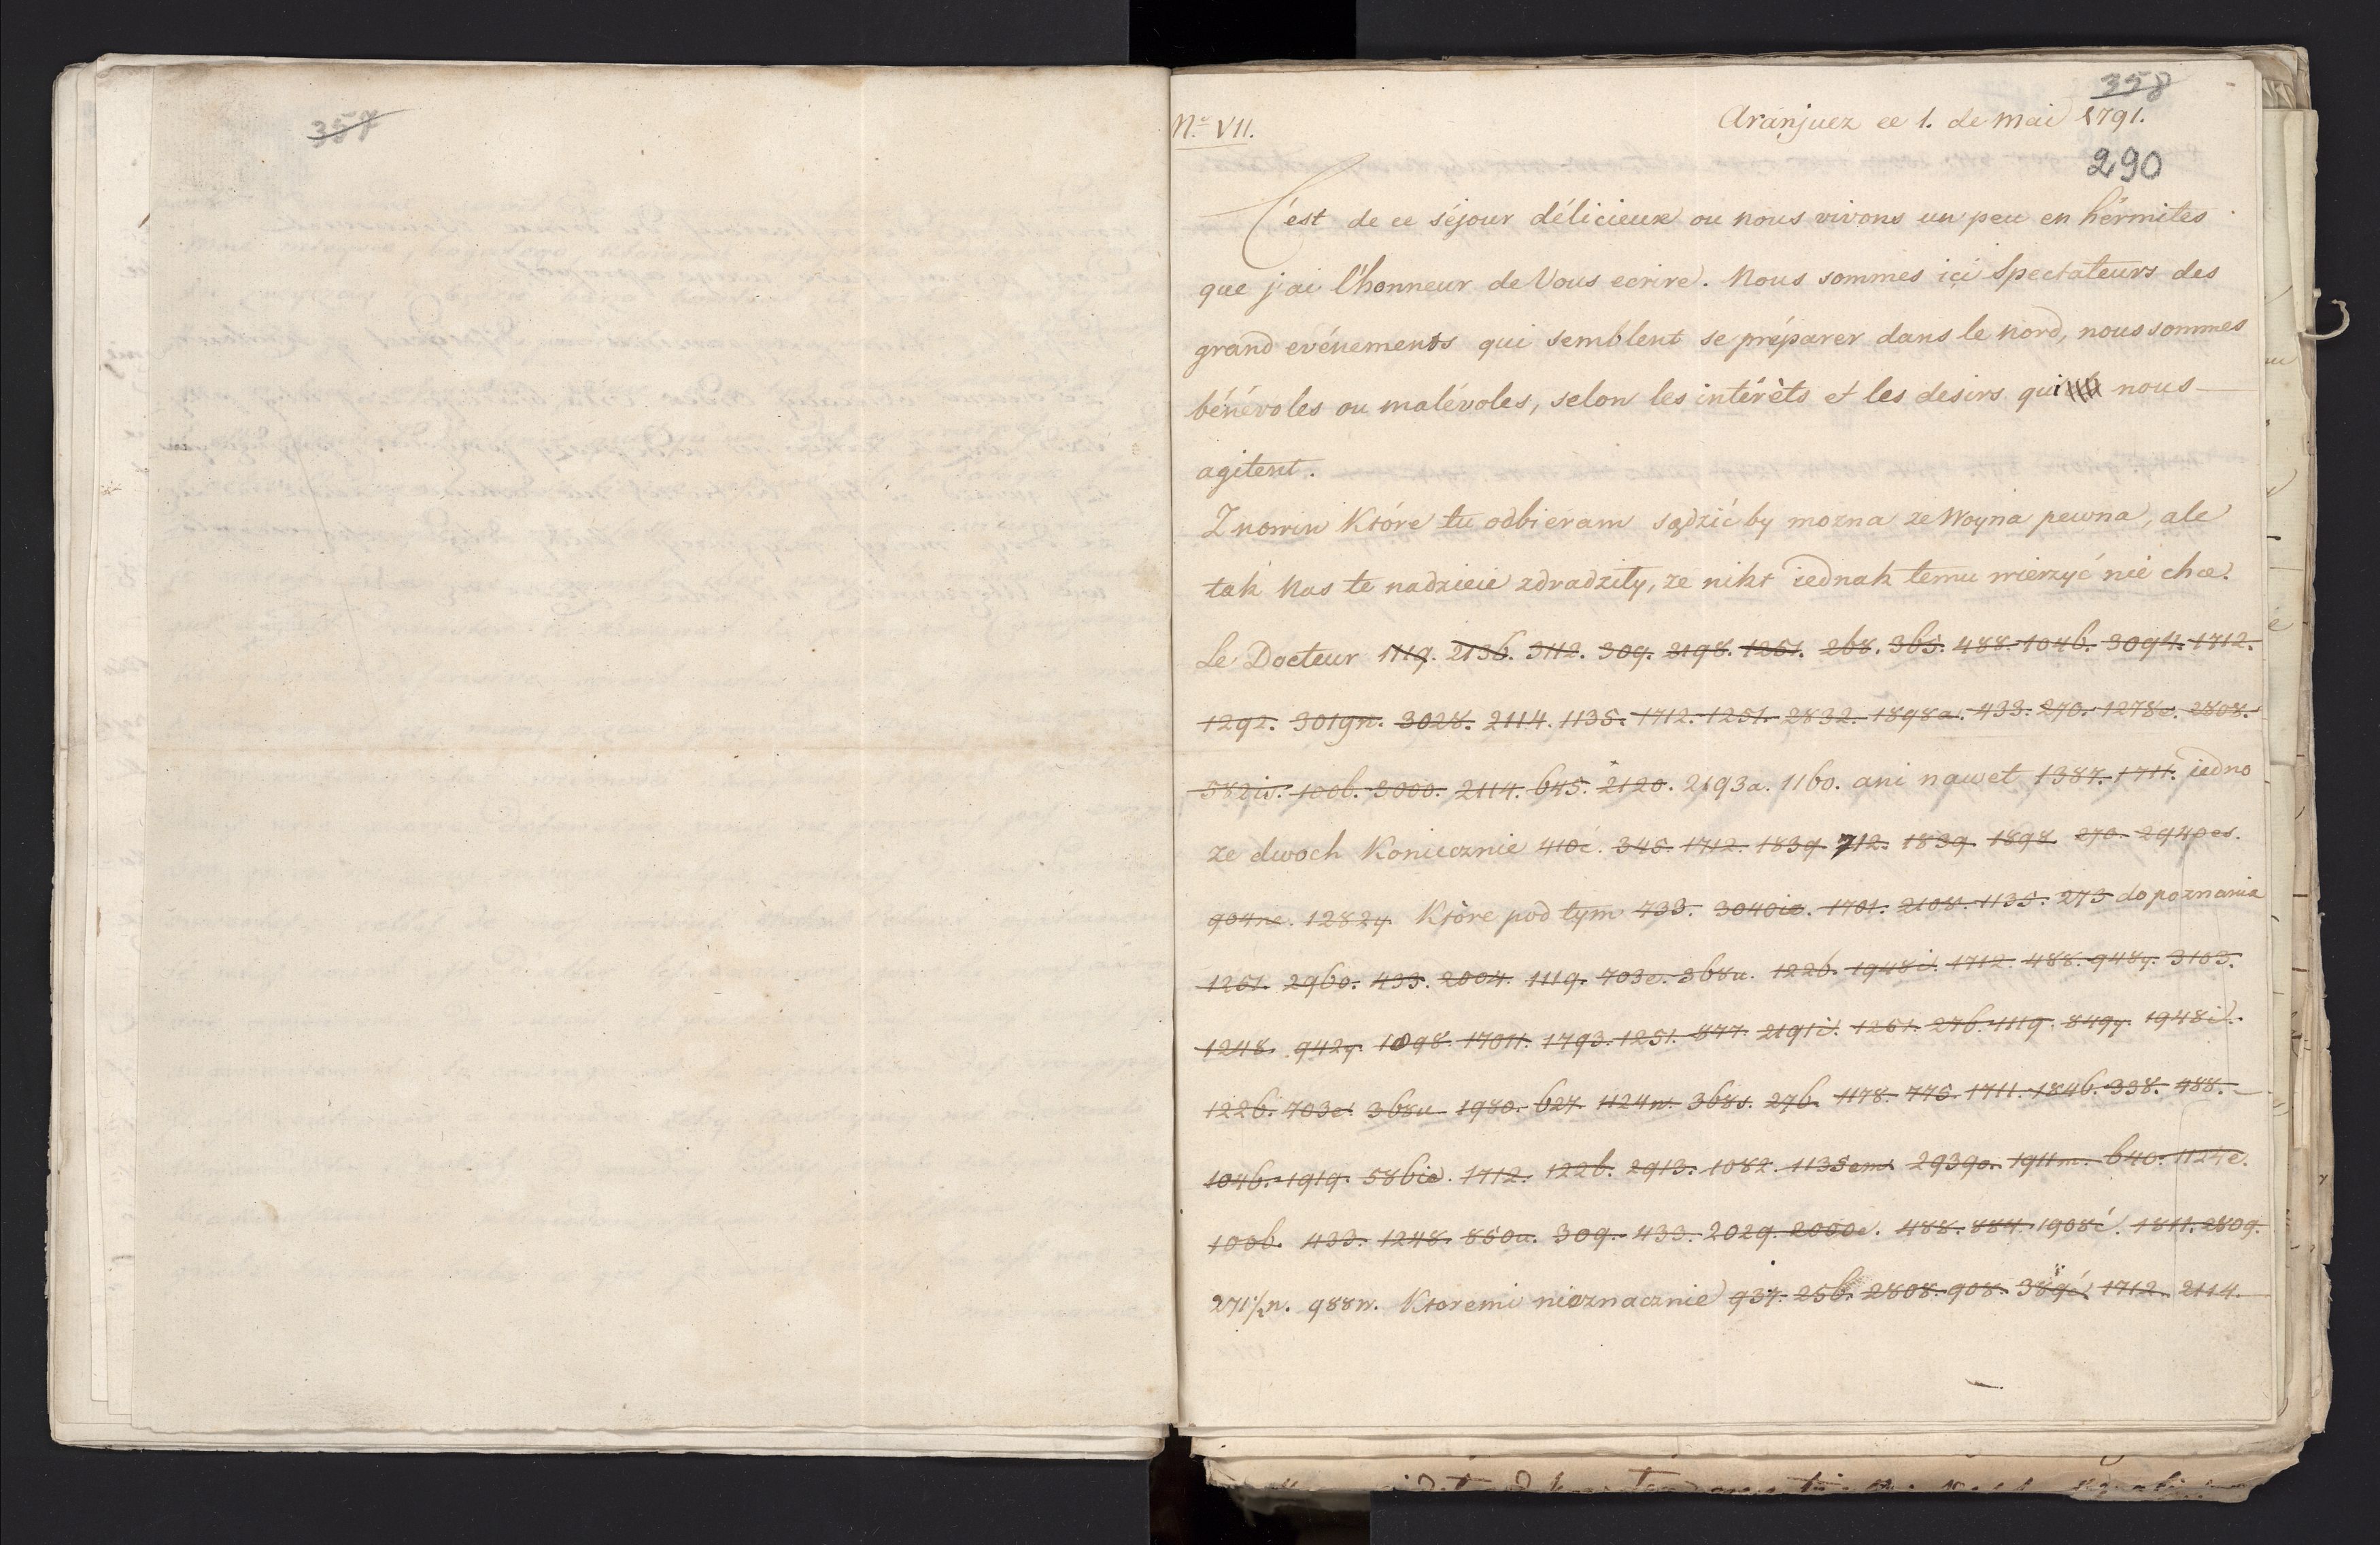 357
358
N.º VII.
Aranjuez ce 1. de Mai 1791.
290
C'est de ce séjour délicieux ou nous vivons un peu en hérmites
que j'ai l'honneur de Vous ecrire. Nous sommes içi Spectateurs des
grand evénements qui semblent se préparer dans le Nord, nous sommes
bénévoles ou malévoles, selon les intérèts et les desirs qui nous
agitent.
Z nowin Które tu odbieram sądzić by mozna ze Woyna pewna, ale
tak Nas te nadzieie zdradziły, ze nikt iednak temu wierzyć nie chce.
Le Docteur 1119. 2136. 3112. 309. 2198. 1251. 268. 365. 488. 1046. 3094. 1712.
1292. 3019n. 3028. 2114. 1135. 1712. 1251. 2832. 1898a. 433. 270. 1278e. 2808.
582is. 1006. 3000. 2114. 645. 2120. 2193a. 1160. ani nawet 1387. 1711. iedno
ze dwoch Koniecznie 410ć. 345. 1712. 1839. 712. 1839. 1898. 270. 294pes.
904ne. 1282y. Które pod tym 733. 3040ie. 1701. 2108. 1135. 273 do poznania
1251. 2960. 433. 2004. 1119. 703e. 368u. 1226. 1948i. 1712. 488. 948y. 3163.
1248. 942y. 1098. 1701t. 1793. 1251. 877. 2191i. 1251. 276. 1119. 849y. 1948i.
1226. 703e. 368u 1980. 627. 1124n. 368s. 276. 1178. 775. 1711. 1846. 338. 488.
1046. 1919. 586ie. 1712. 1226. 2913. 1082. 1135em. 2939o. 1911m. 640. 1124e.
1006. 433. 1248. 850u. 309. 433. 2029. 2050e. 488. 884. 1908ć. 1811. 2809.
271½n. 988w. Ktoremi nieznacznie 937. 256. 2808. 908. 389ć. 1712. 2114.